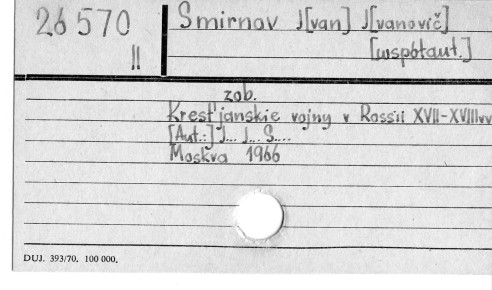 26570 Smirnov J[van] J[vanovič]
II [współaut.]
zob.
Krest'janskie vojny v Rossii XVII-XVIIIvv
[Aut.:] J... J... S....
Moskva 1966
DUJ. 393/70. 100 000.